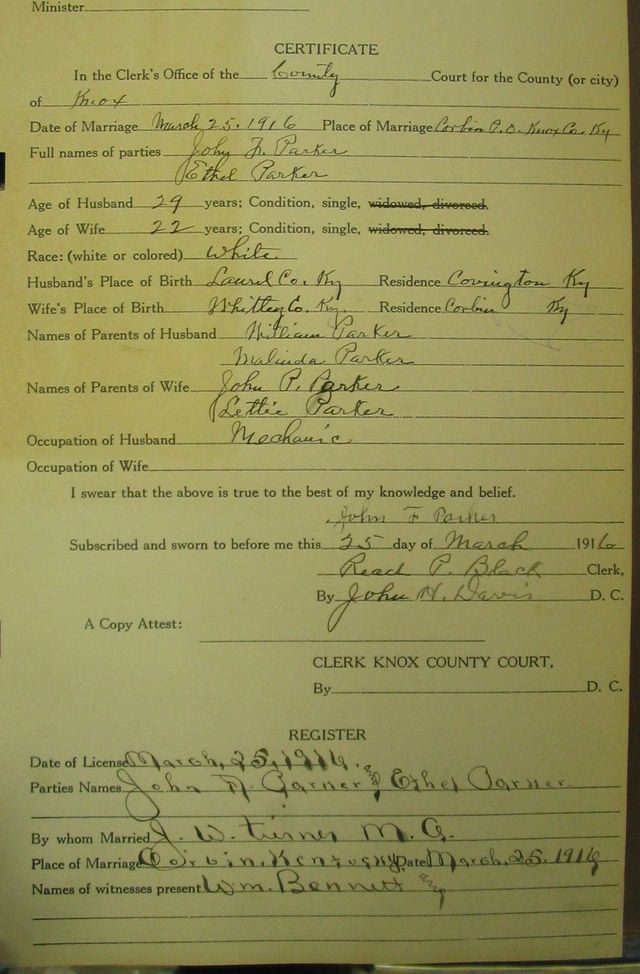 Minister
CERTIFICATE
In the Clerk's Office of the County Court for the County (or city)
of Knox
Date of Marriage March 25, 1916 Place of Marriage Corbin P.O. Knox Co. Ky
Full names of parties John F. Parker
Ethel Parker
Age of Husband 29 years; Condition, single, widowed, divorced.
Age of Wife 22 years; Condition, single, widowed, divorced.
Race: (white or colored) White
Husband's Place of Birth Laurel Co. Ky Residence Covington Ky
Wife's Place of Birth Whitley Co. Ky. Residence Corbin Ky
Names of Parents of Husband William Parker
Malinda Parker
Names of Parents of Wife John P. Parker
Lettie Parker
Occupation of Husband Mechanic
Occupation of Wife
I swear that the above is true to the best of my knowledge and belief.
John F Parker
Subscribed and sworn to before me this 25 day of March 1916
Read P. Black Clerk,
By John H. Davis D. C.
A Copy Attest:
CLERK KNOX COUNTY COURT,
By D. C.
REGISTER
Date of License March, 25, 1916.
Parties Names John and Ethel
By whom Married J. W. Turner M. G.
Place of Marriage Corbin, Kentucky Date March, 25. 1916
Names of witnesses present Wm. Bennett